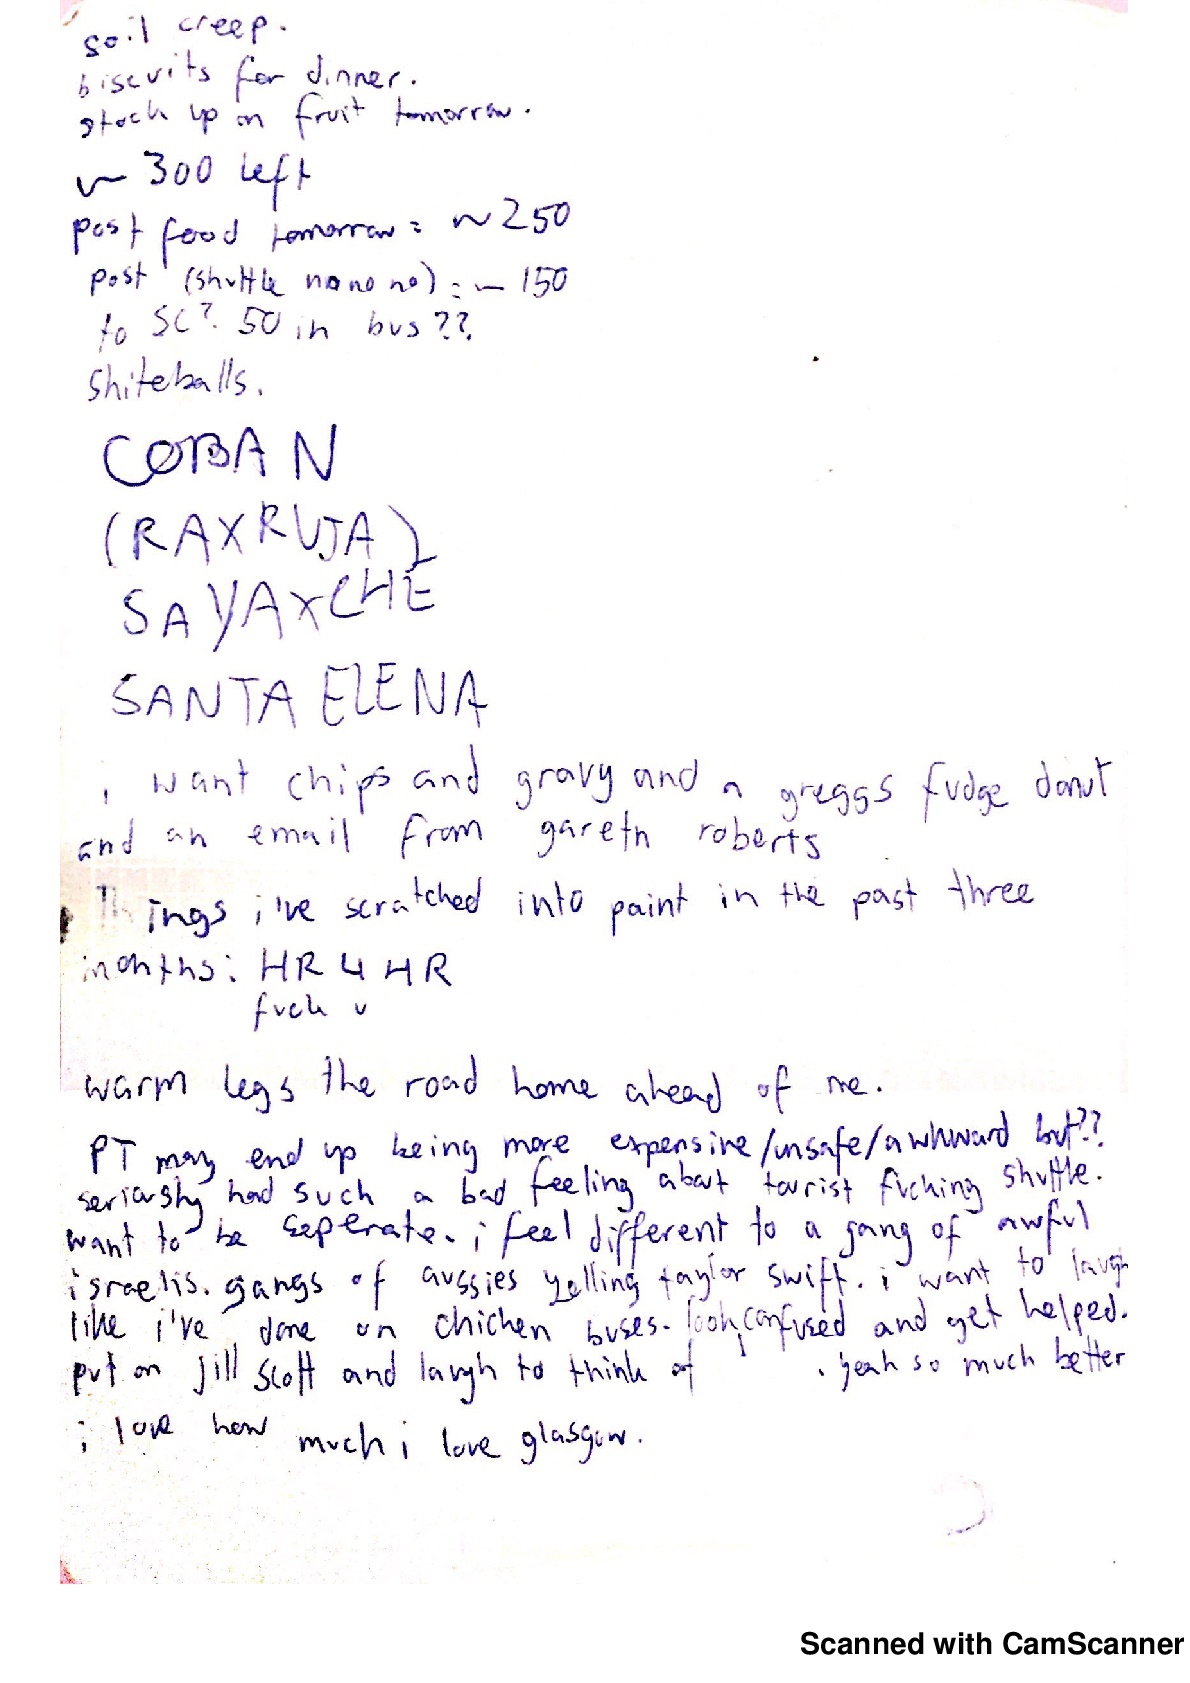 soil creep.
biscuits for dinner.
stock up on fruit tomorrow.
~ 300 left
post food tomorrow = ~ 250
post (shuttle no no no) = ~ 150
to SC? 50 in bus??
shiteballs.
COBAN
(RAXRUJA)
SAYAXCHE
SANTA ELENA
i want chips and gravy and a greggs fudge donut
and an email from gareth roberts
Things i've scratched into paint in the past three
months: HR 4 HR
fuck u
warm legs the road home ahead of me.
PT may end up being more expensive/unsafe/awkward but??
seriously had such a bad feeling about tourist fucking shuttle.
want to be seperate. i feel different to a gang of awful
israelis. gangs of aussies yelling taylor swift. i want to laugh
like i've done on chicken buses. look confused and get helped.
put on jill scott and laugh to think of . yeah so much better
i love how much i love glasgow.
Scanned with CamScanner